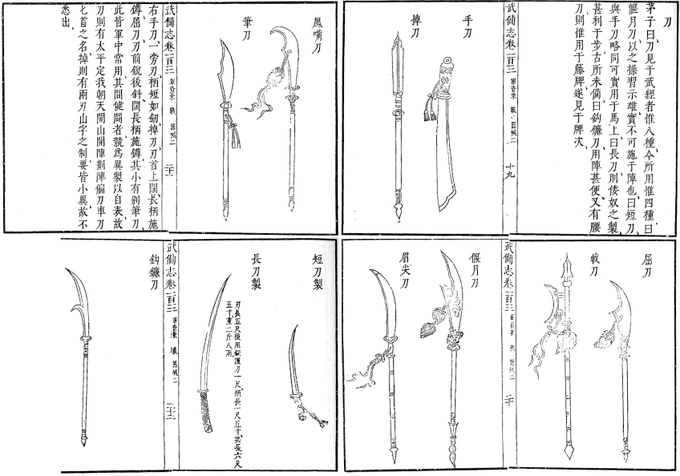 刀
茅子曰刀見于武經者惟八種今所用惟四種曰
偃月刀以之操習示雄實不可施于陣也曰短刀
與手刀略同可實用于馬上曰長刀則倭奴之製
甚利于步古所未備曰鈎鐮刀用陣甚便又有腰
刀則惟用于藤牌逐見于牌次
武備志卷一百三 軍資乘 戰 器械二 十九
手刀
掉刀
屈刀
戟刀
武備志卷一百三 軍資乘 戰 器械二 二十
偃月刀
眉尖刀
鳳嘴刀
筆刀
武備志卷一百三 軍資乘 戰 器械二 二十一
右手刀一旁刃柄短如劎掉刀刃首上闊長柄施
鐏屈刀刃前銳後斜闊長柄施鐏其小有別筆刀
此皆軍中常用其間健鬬者競爲異製以自表故
刀則有太平定我朝天開山開陣劃陣偏刀車刀
匕首之名掉則有兩刃山字之制要皆小異故不
悉出
短刀製
長刀製
刃長五尺後用銅護刃一尺柄長一尺五寸共長六尺
五寸重二斤八兩
武備志卷一百三 軍資乘 戰 器械二 二十二
鈎鐮刀